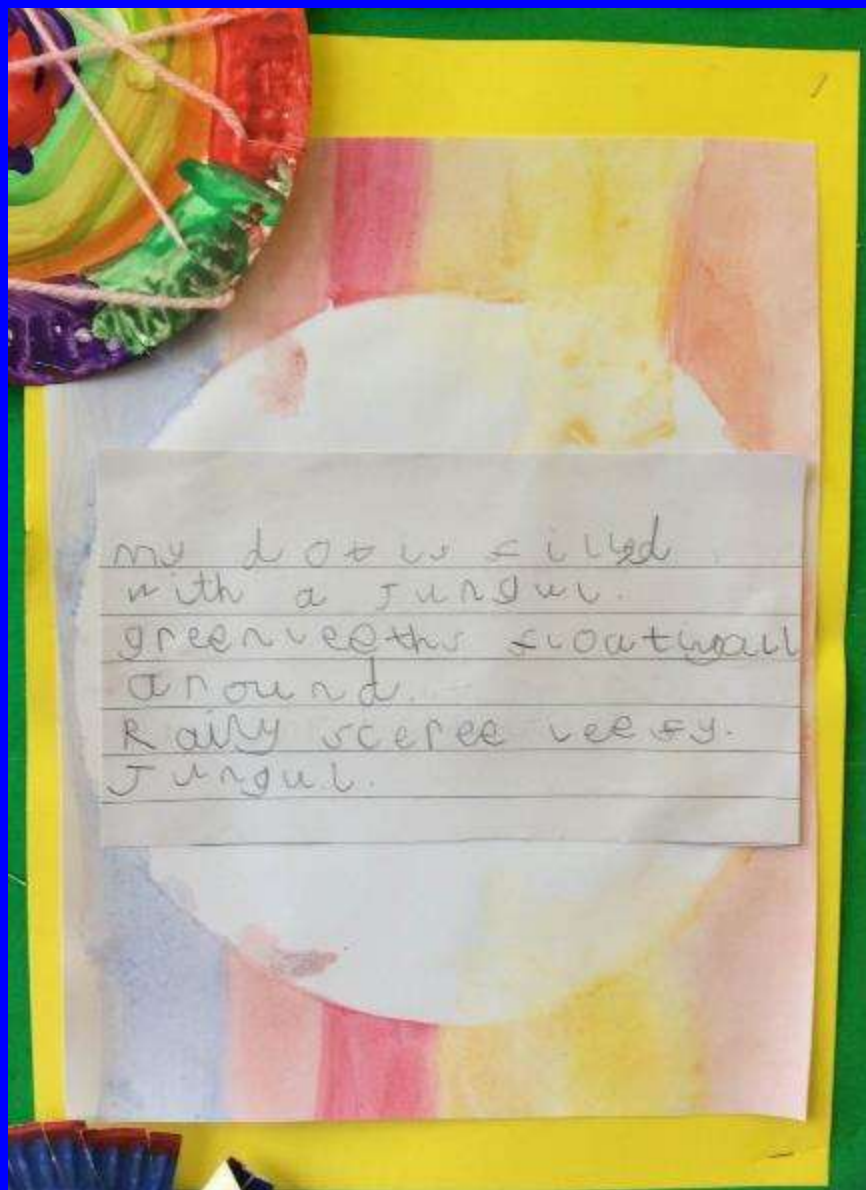 my dot is filled
with a Jungul.
greenleeths floatingall
around.
Raily sceree leefy.
Jungul.